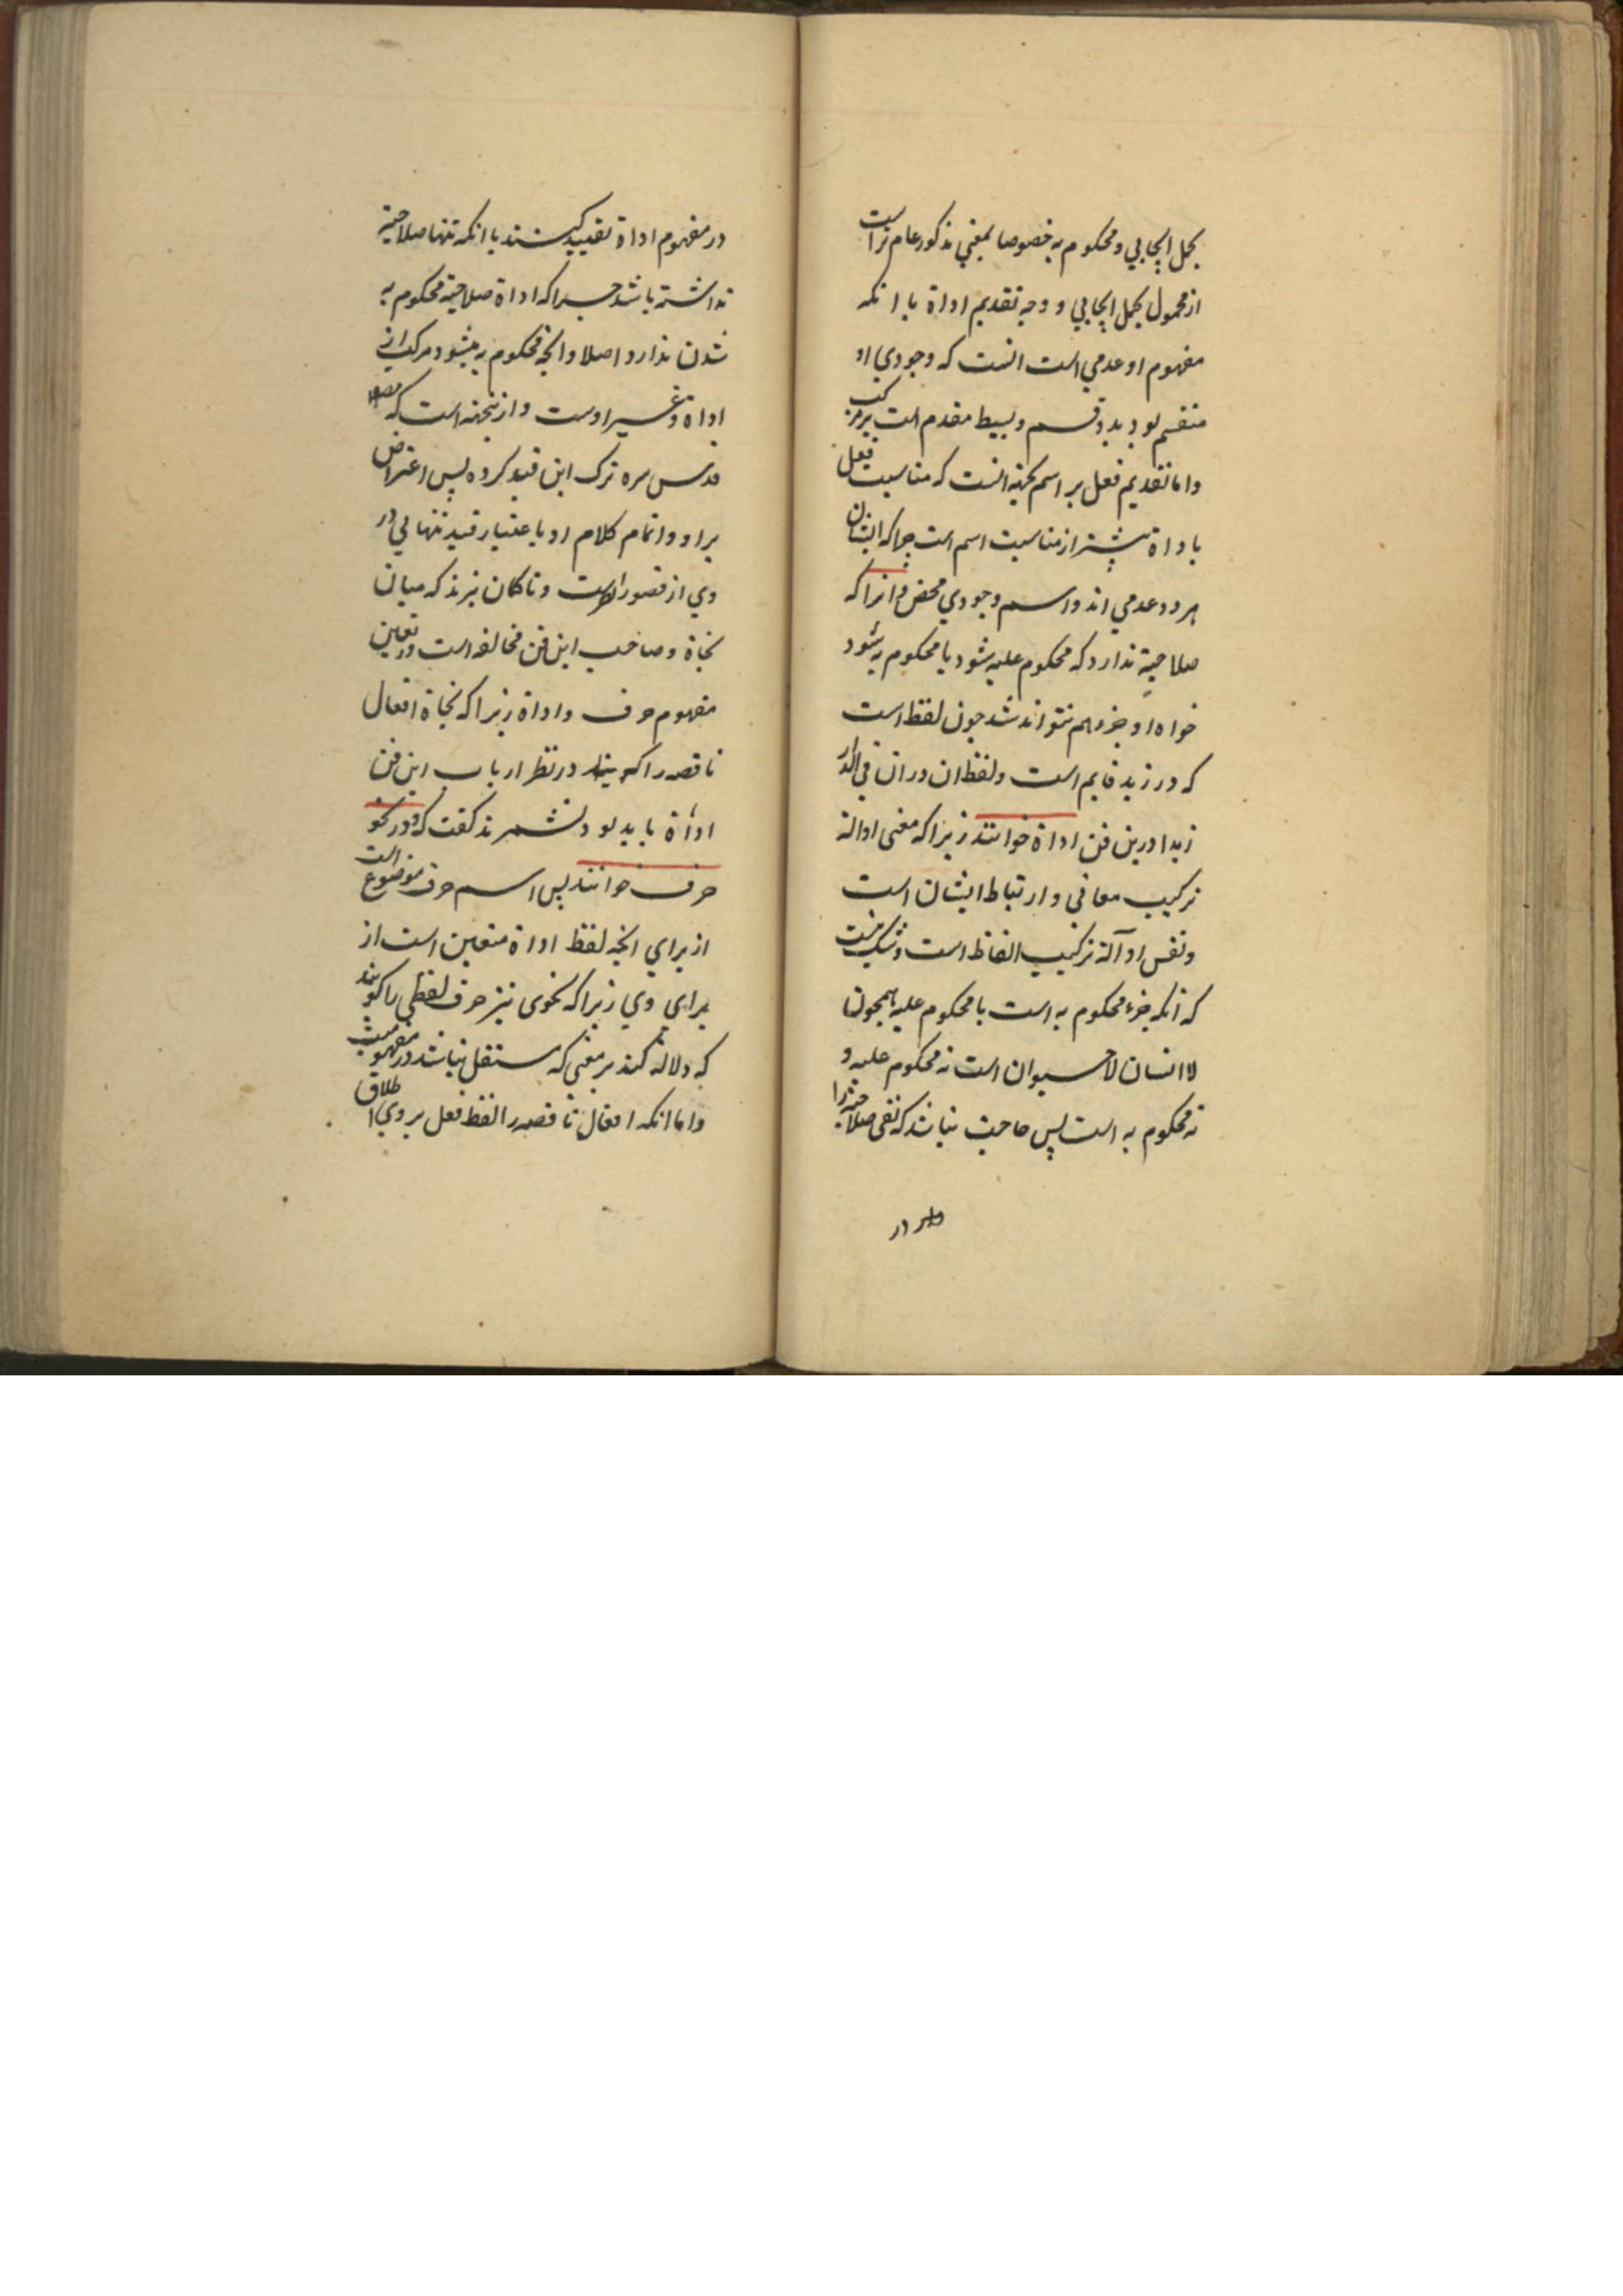 بحمل ایجابي و محکوم به خصوصا بمعني مذکور عام تر است
از محمول بحمل ایجابي و وجه تقدیم اداة با انکه
مفهوم او عدمي است انست که وجودي او
منقسم بود بدو قسم و بسیط مقدم است بر مرکب
و اما تقدیم فعل بر اسم بجهة انست که مناسبت فعل
باداة بیشتر از مناسبت اسم است چراکه ایشان
هر دو عدمي اند و اسم وجودي محض و انرا که
صلاحیة ندارد که محکوم علیه شود یا محکوم به شود
خواه او جزء هم نتواند شد چون لفظ است
که در زید قایم است و لفظ ان در ان في الدار
زیدا درین فن اداة خوانند زیرا که معنی ادالة
ترکیب معاني و ارتباط ایشان است
و نفس او آلة ترکیب الفاظ است و شک نیست
که انکه جزء محکوم به است یا محکوم علیه همچو لنا
لا انسان لا حیوان است نه محکوم علیه و
نه محکوم به است پس حاجت نباشد که نفی صلاحیة را
در مفهوم اداة تقیید کنند با انکه تنها صلاحیة
نداشته باشد چراکه اداة صلاحیة محکوم به
شدن ندارد اصلا و انچه محکوم به میشود مرکب از
اداة و غیر اوست و ازینجهة است که مصنف
قدس سره ترک این قید کرده پس اعتراض
بر او و اتمام کلام او باعتبار قید تنهایي در
وي از قصور است و تا کمان نبرند که میان
نحاة و صاحب این فن مخالفه است در تعیین
مفهوم حرف و اداة زیرا که نحاة افعال
ناقصه را که در نظر ارباب این فن
اداة باید بود نشمرند کفت که و در نحو
حرف خوانند پس اسم حرف موضوع است
از براي انچه لفظ اداة متعین است از
براي وي زیرا که نحوی نیز حرف لفظی را کویند
که دلالة کند بر معني که مستقل نباشد در مفهومیت
و اما انکه افعال ناقصه را لفظ فعل بر وي اطلاق